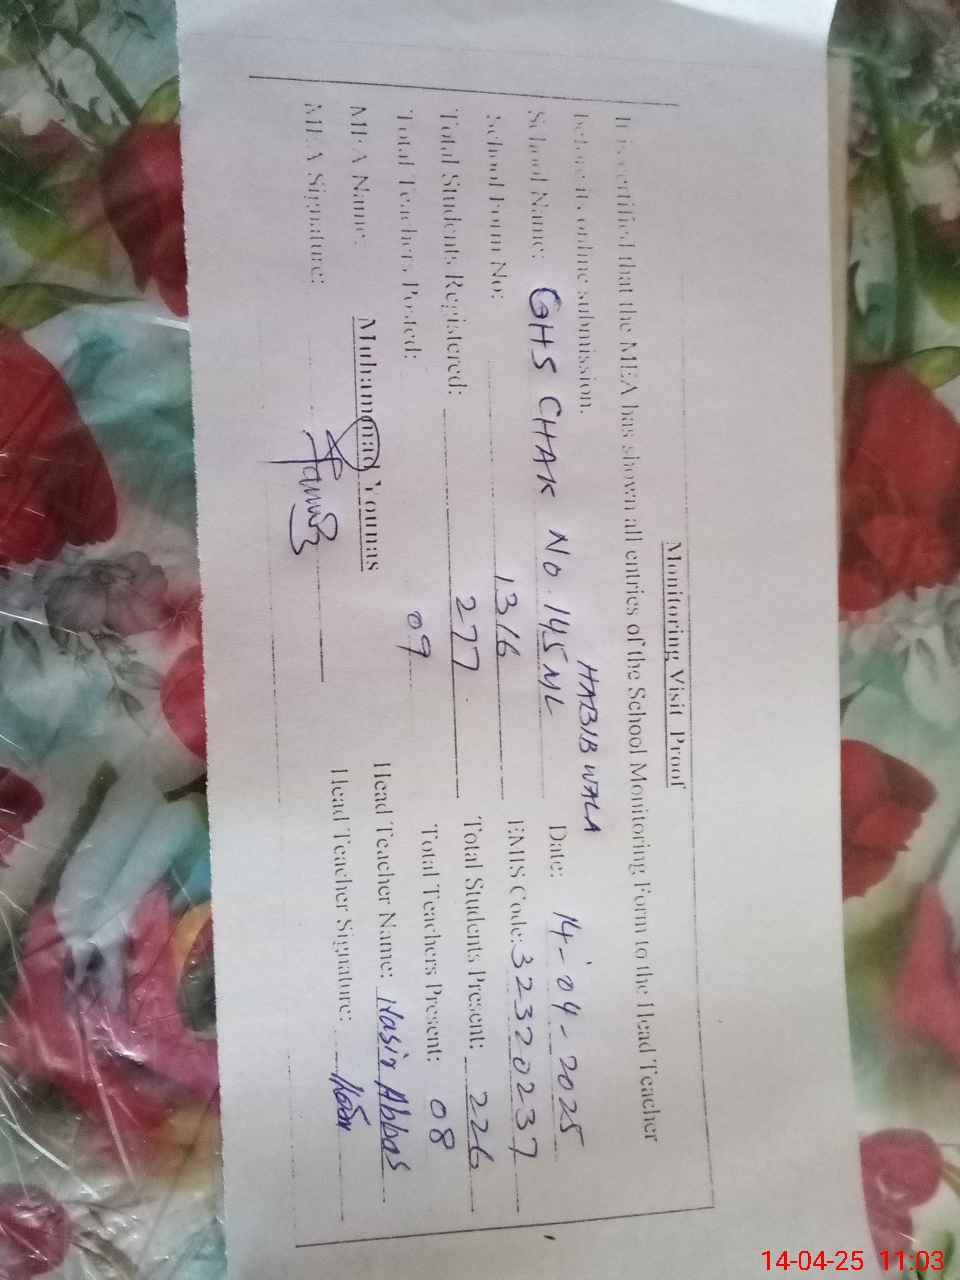 Monitoring Visit Proof
It is certified that the MEA has shown all entries of the School Monitoring Form to the Head Teacher
before its online submission.
HABIB WALA
School Name: GHS CHAK No. 145 ML Date: 14-04-2025
School Form No: 1316 EMIS Code: 32320237
Total Students Registered: 277 Total Students Present: 226
Total Teachers Posted: 09 Total Teachers Present: 08
MEA Name: Muhammad Younas Head Teacher Name: Nasir Abbas
MEA Signature: Head Teacher Signature:
14-04-25 11:03